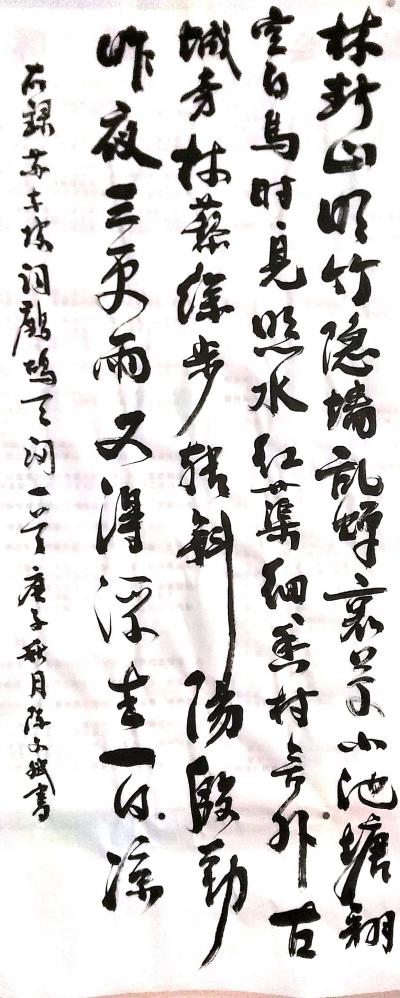 林断山明竹隐墙乱蝉衰草小池塘翻
空白鸟时々见照水红蕖细々香村舍外古
城旁杖藜徐步转斜陽殷勤
昨夜三更雨又得浮生一日凉
右録苏东坡词鹧鸪天词一首 庚子秋月陈文書